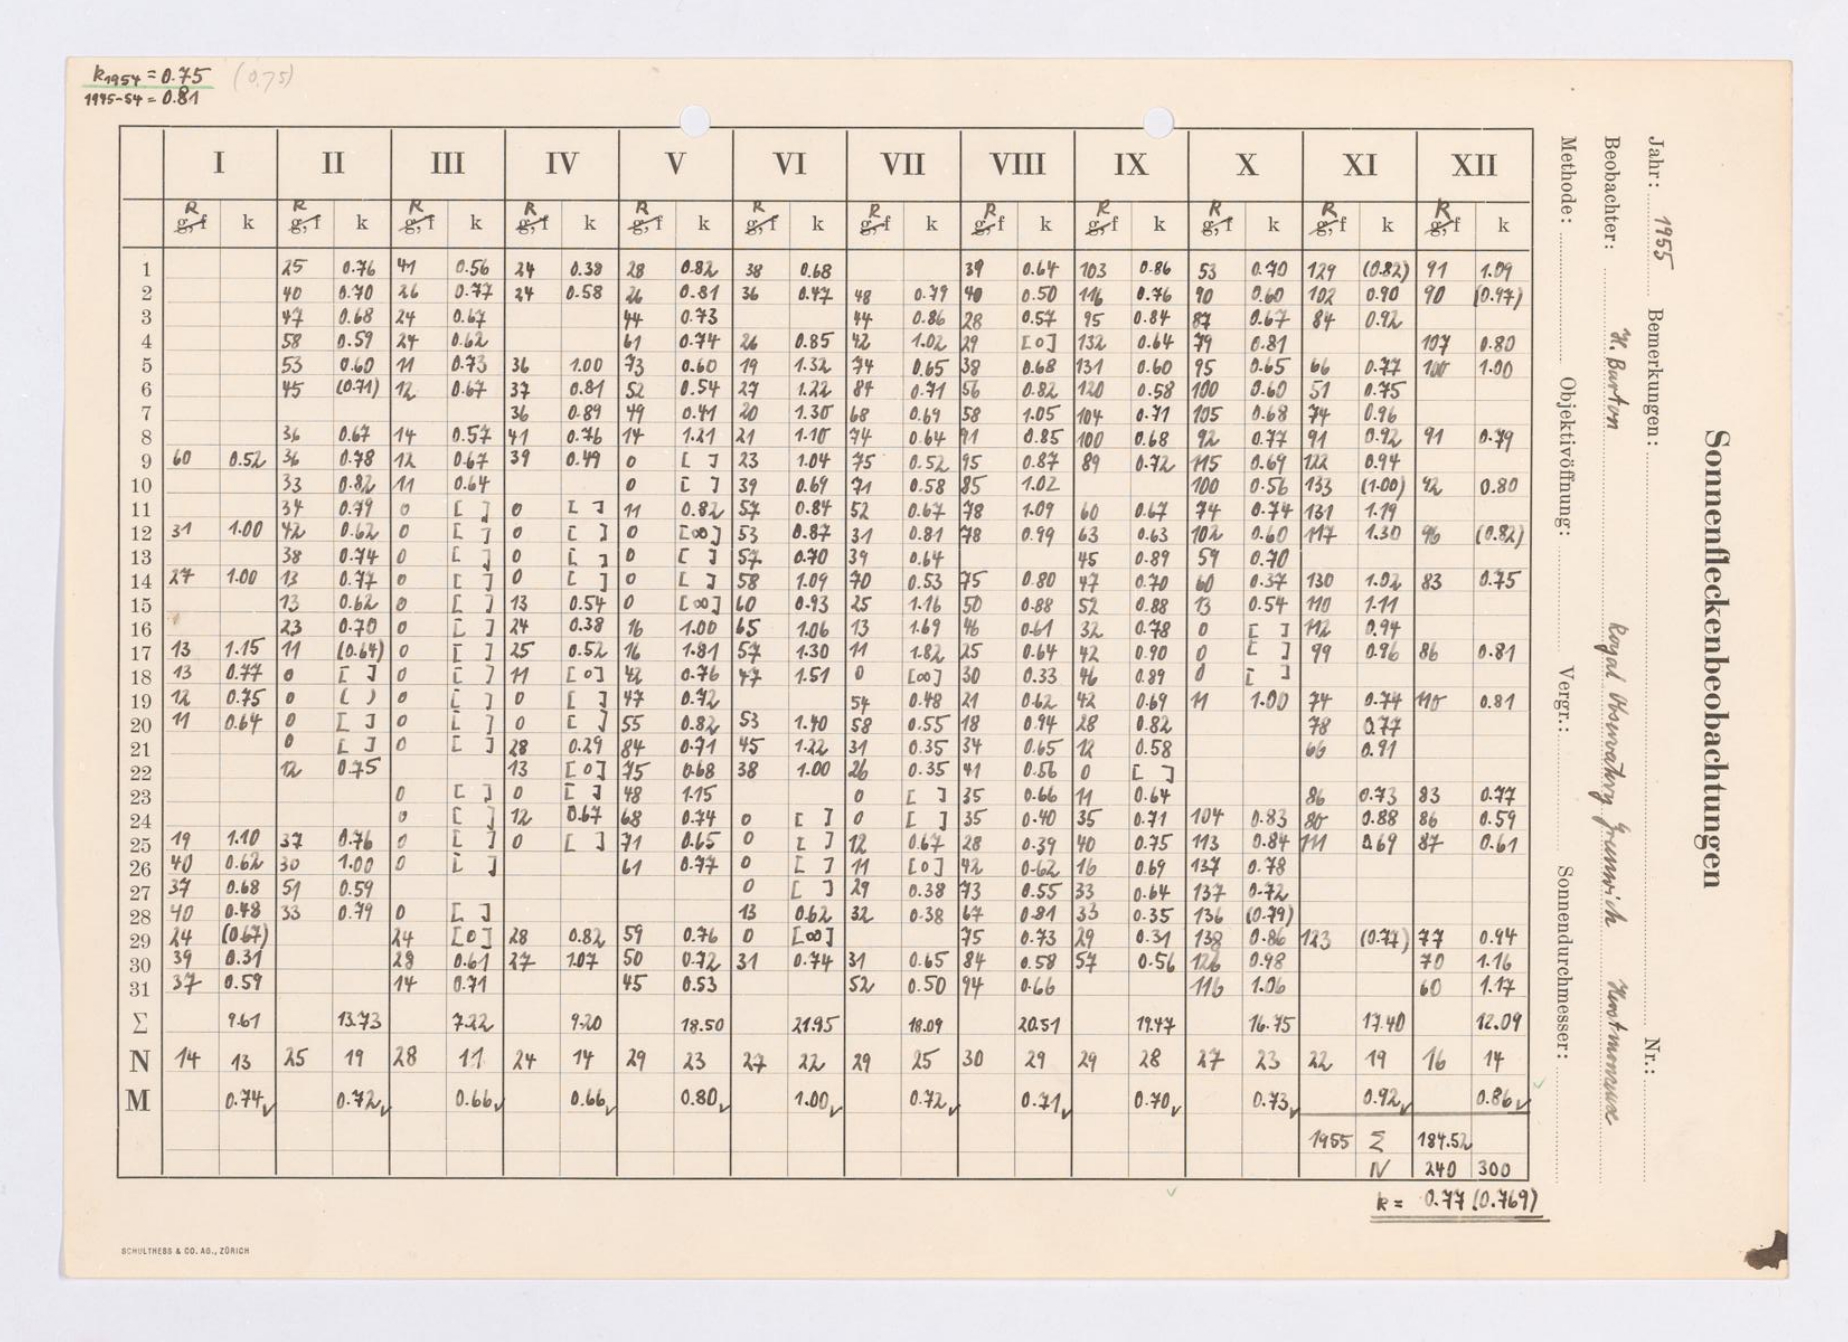 k1954 = 0.75 (0.75)
1945-54 = 0.81
Sonnenfleckenbeobachtungen
Jahr: 1955 Bemerkungen: Nr.:
Beobachter: H. Burton Royal Observatory Greenwich Herstmonceux
Methode: Objektivöffnung: Vergr.: Sonnendurchmesser:
I II III IV V VI VII VIII IX X XI XII
R g, f k R g, f k R g, f k R g, f k R g, f k R g, f k R g, f k R g, f k R g, f k R g, f k R g, f k R g, f k
1 25 0.76 41 0.56 24 0.38 28 0.82 38 0.68 39 0.64 103 0.86 53 0.70 129 (0.82) 91 1.09
2 40 0.70 26 0.77 24 0.58 26 0.81 36 0.47 48 0.79 40 0.50 116 0.76 90 0.60 102 0.90 90 (0.97)
3 47 0.68 24 0.67 44 0.73 44 0.86 28 0.57 95 0.84 87 0.67 84 0.92
4 58 0.59 24 0.62 61 0.74 26 0.85 42 1.02 29 [0] 132 0.64 79 0.81 107 0.80
5 53 0.60 11 0.73 36 1.00 73 0.60 19 1.32 74 0.65 38 0.68 131 0.60 95 0.65 66 0.77 100 1.00
6 45 (0.71) 12 0.67 37 0.81 52 0.54 27 1.22 84 0.71 56 0.82 120 0.58 100 0.60 51 0.75
7 36 0.89 49 0.41 20 1.30 68 0.69 58 1.05 104 0.71 105 0.68 74 0.96
8 36 0.67 14 0.57 41 0.76 14 1.21 21 1.10 74 0.64 91 0.85 100 0.68 92 0.77 91 0.92 91 0.79
9 60 0.52 36 0.78 12 0.67 39 0.49 0 [ ] 23 1.04 75 0.52 95 0.87 89 0.72 115 0.69 122 0.94
10 33 0.82 11 0.64 0 [ ] 39 0.69 71 0.58 85 1.02 100 0.56 133 (1.00) 42 0.80
11 34 0.79 0 [ ] 0 [ ] 11 0.82 57 0.84 52 0.67 78 1.09 60 0.67 74 0.74 131 1.19
12 31 1.00 42 0.62 0 [ ] 0 [ ] 0 [∞] 53 0.87 31 0.81 78 0.99 63 0.63 102 0.60 117 1.30 96 (0.82)
13 38 0.74 0 [ ] 0 [ ] 0 [ ] 57 0.70 39 0.64 45 0.89 59 0.70
14 27 1.00 13 0.77 0 [ ] 0 [ ] 0 [ ] 58 1.09 70 0.53 75 0.80 47 0.70 60 0.37 130 1.02 83 0.75
15 13 0.62 0 [ ] 13 0.54 0 [∞] 60 0.93 25 1.16 50 0.88 52 0.88 13 0.54 110 1.11
16 23 0.70 0 [ ] 24 0.38 16 1.00 65 1.06 13 1.69 46 0.61 32 0.78 0 [ ] 112 0.94
17 13 1.15 11 (0.64) 0 [ ] 25 0.52 16 1.81 57 1.30 11 1.82 25 0.64 42 0.90 0 [ ] 99 0.96 86 0.81
18 13 0.77 0 [ ] 0 [ ] 11 [0] 42 0.76 47 1.51 0 [∞] 30 0.33 46 0.89 0 [ ]
19 12 0.75 0 ( ) 0 [ ] 0 [ ] 47 0.72 54 0.48 21 0.62 42 0.69 11 1.00 74 0.74 110 0.81
20 11 0.64 0 [ ] 0 [ ] 0 [ ] 55 0.82 53 1.40 58 0.55 18 0.94 28 0.82 78 0.77
21 0 [ ] 0 [ ] 28 0.29 84 0.71 45 1.22 31 0.35 34 0.65 12 0.58 66 0.91
22 12 0.75 13 [0] 75 0.68 38 1.00 26 0.35 41 0.56 0 [ ]
23 0 [ ] 0 [ ] 48 1.15 0 [ ] 35 0.66 11 0.64 86 0.73 83 0.77
24 0 [ ] 12 0.67 68 0.74 0 [ ] 0 [ ] 35 0.40 35 0.71 104 0.83 80 0.88 86 0.59
25 19 1.10 37 0.76 0 [ ] 0 [ ] 71 0.65 0 [ ] 12 0.67 28 0.39 40 0.75 113 0.84 111 0.69 87 0.61
26 40 0.62 30 1.00 0 [ ] 61 0.77 0 [ ] 11 [0] 42 0.62 16 0.69 137 0.78
27 37 0.68 51 0.59 0 [ ] 29 0.38 73 0.55 33 0.64 137 0.72
28 40 0.48 33 0.79 0 [ ] 13 0.62 32 0.38 67 0.81 33 0.35 136 (0.79)
29 24 (0.67) 24 [0] 28 0.82 59 0.76 0 [∞] 75 0.73 29 0.31 138 0.86 123 (0.77) 77 0.94
30 39 0.31 28 0.61 27 1.07 50 0.72 31 0.74 31 0.65 84 0.58 57 0.56 126 0.98 70 1.16
31 37 0.59 14 0.71 45 0.53 52 0.50 94 0.66 116 1.06 60 1.17
Σ 9.61 13.73 7.22 9.20 18.50 21.95 18.09 20.51 19.47 16.75 17.40 12.09
N 14 13 25 19 28 11 24 14 29 23 27 22 29 25 30 29 29 28 27 23 22 19 16 14
M 0.74 0.72 0.66 0.66 0.80 1.00 0.72 0.71 0.70 0.73 0.92 0.86
1955 Σ 184.52
N 240 300
k = 0.77 (0.769)
SCHULTHESS & CO. AG., ZÜRICH